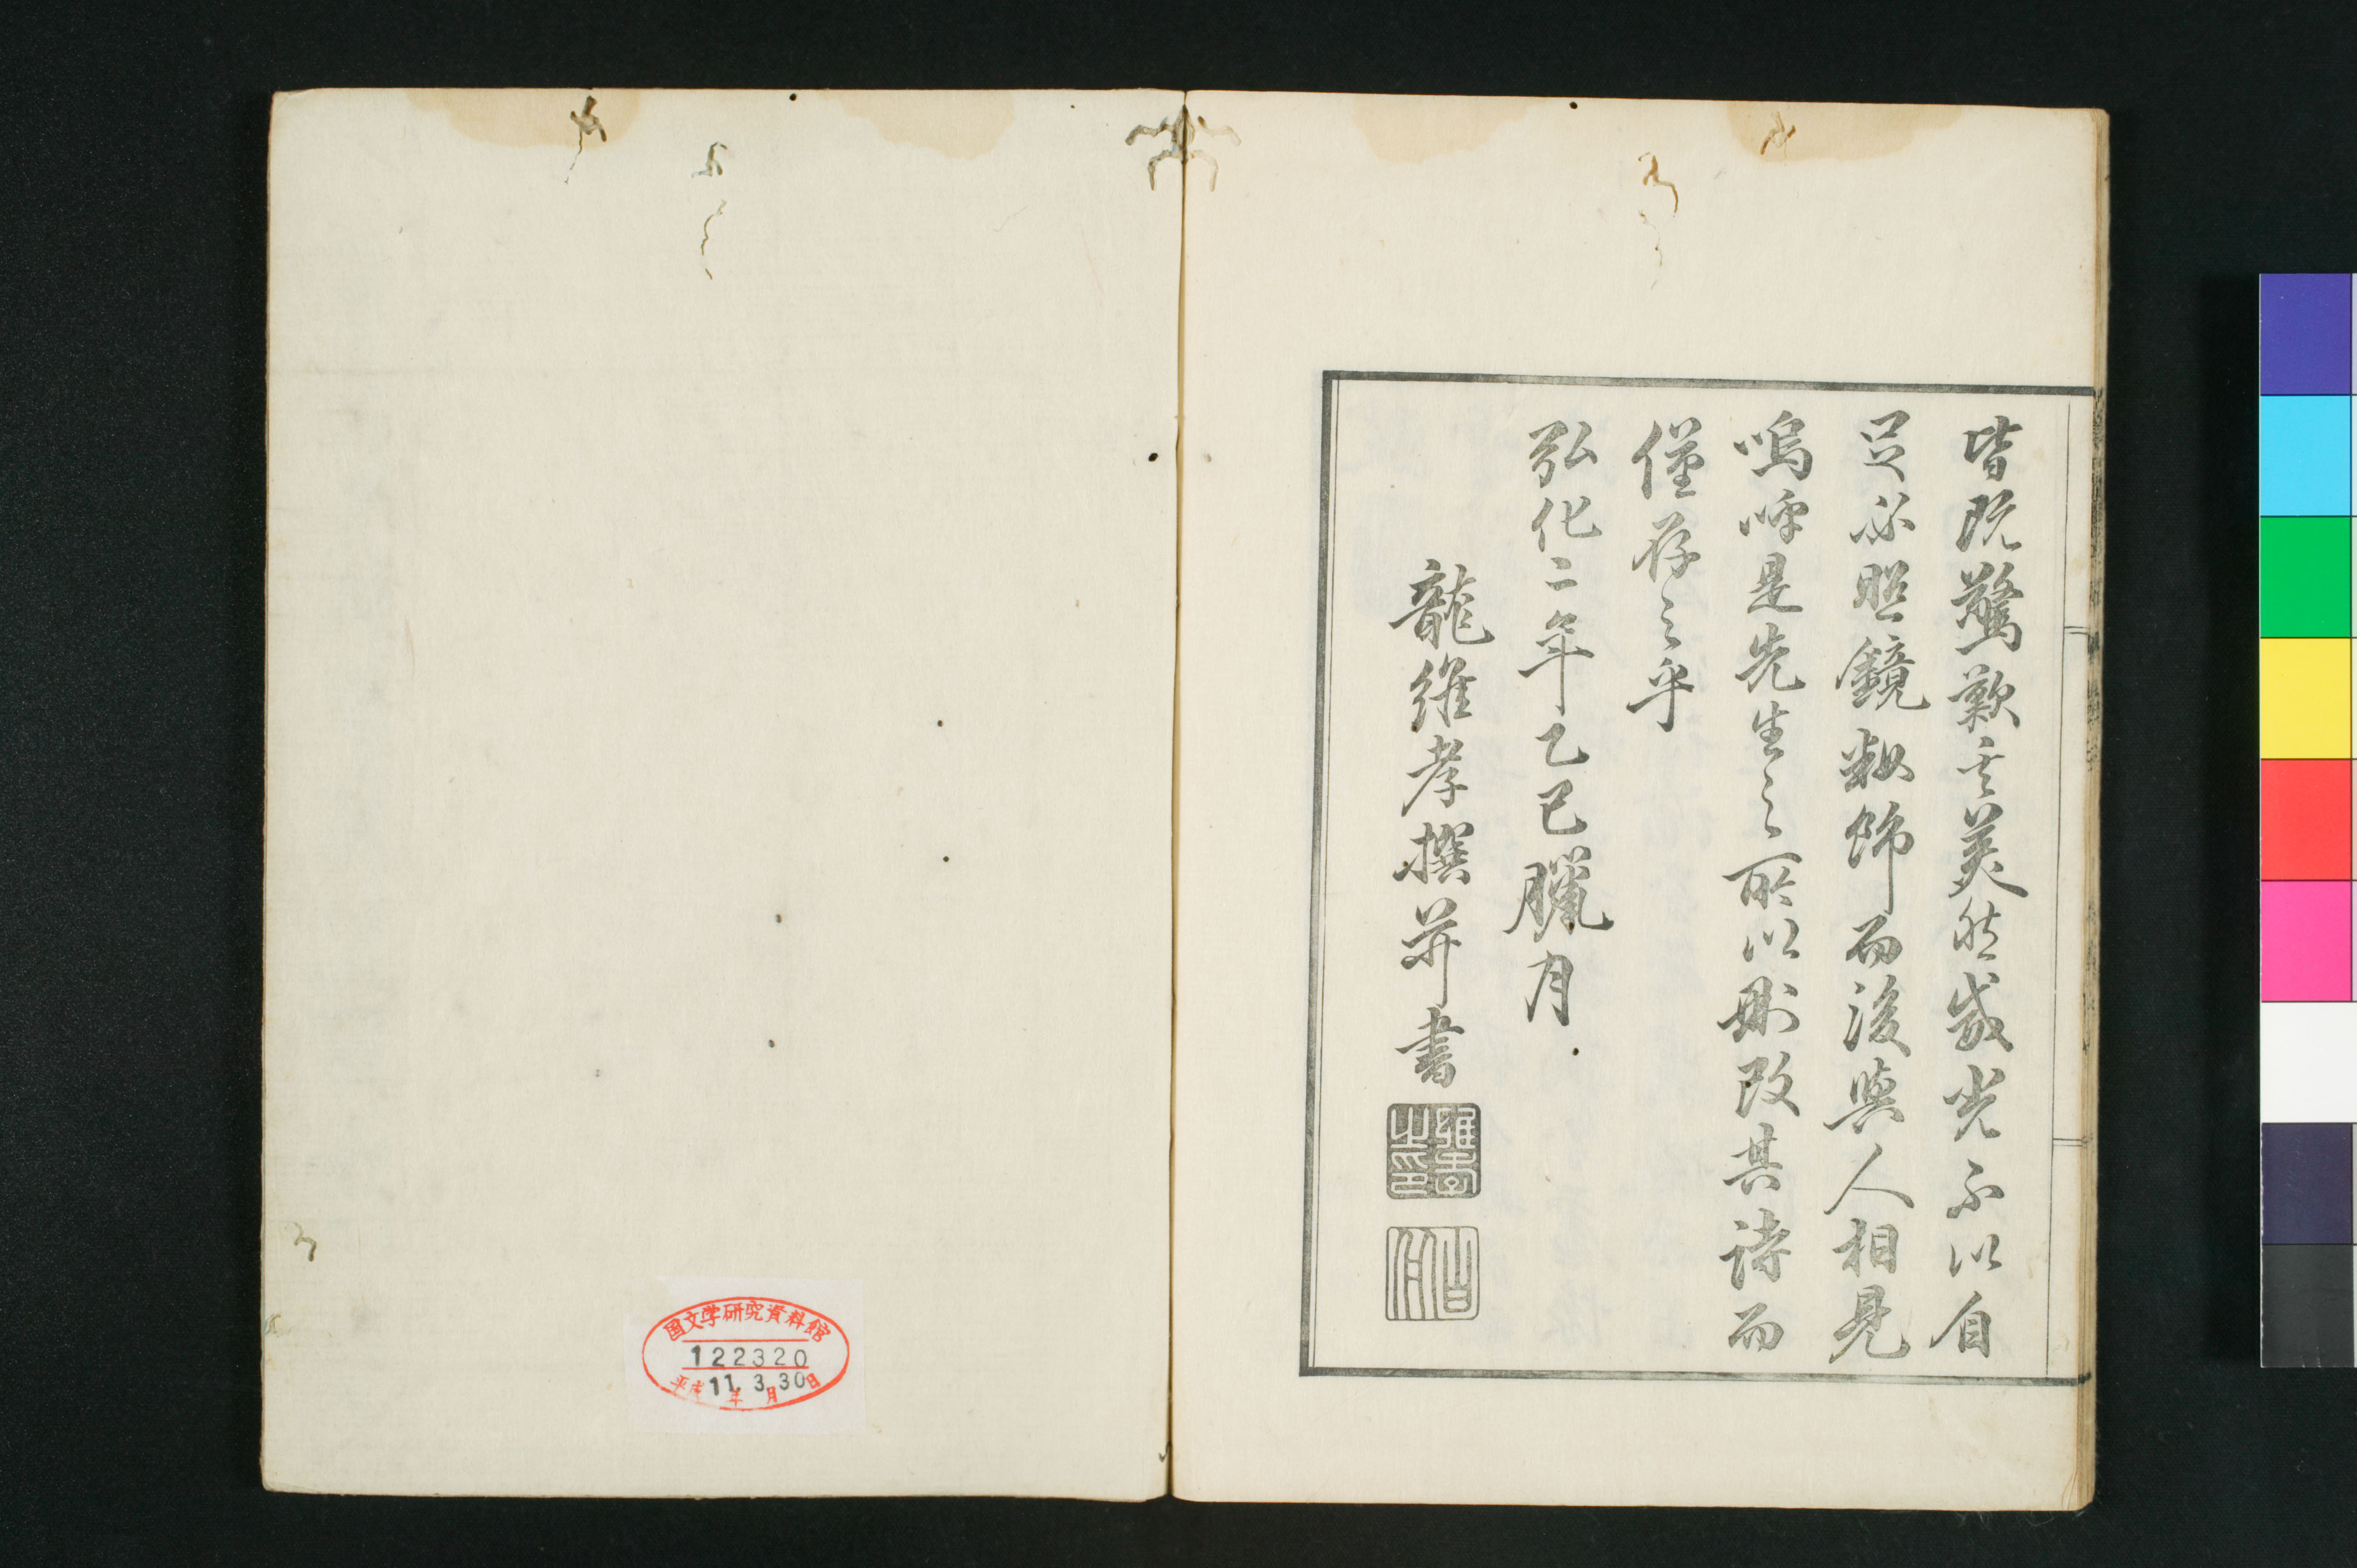 皆既驚歎其美然威光不以自
足必照鏡粧飾而後與人相見
嗚呼是先生之所以刪改其詩而
僅存之乎
弘化二年乙巳臘月
龍維孝撰并書
維孝之印
国文学研究資料館
122320
平成11年3月30日